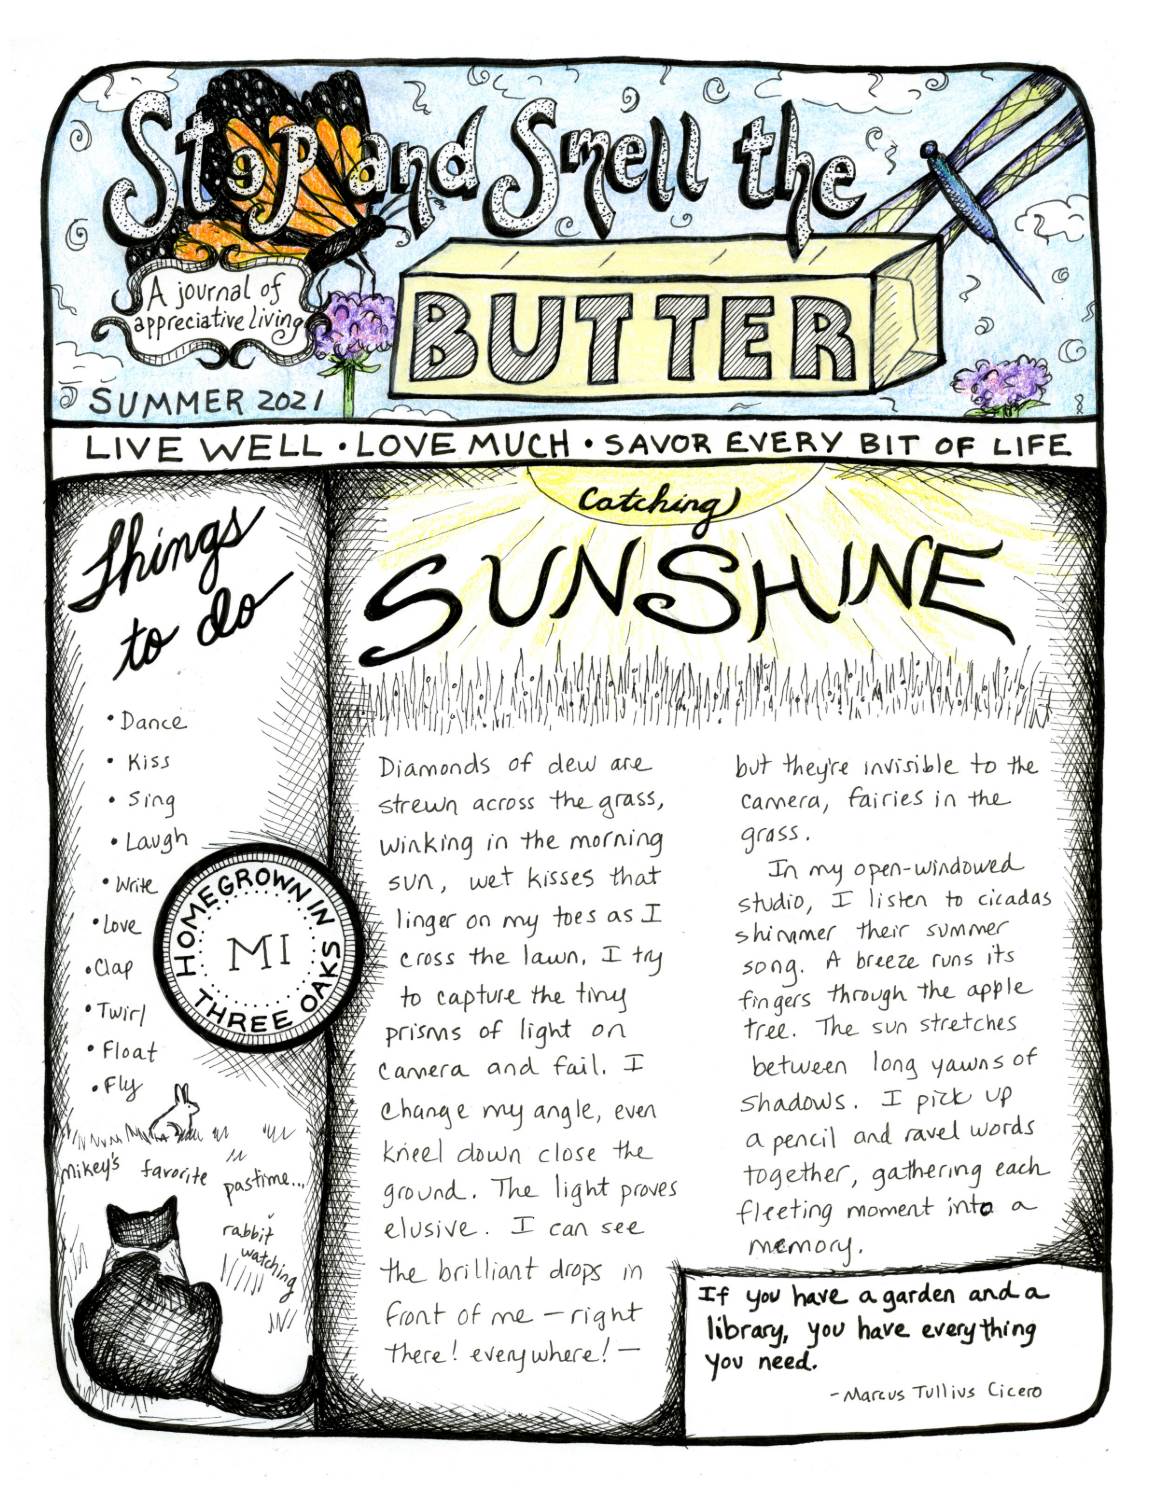 Stop and Smell the
BUTTER
A journal of
appreciative living
SUMMER 2021
LIVE WELL • LOVE MUCH • SAVOR EVERY BIT OF LIFE
Things
to do
• Dance
• Kiss
• Sing
• Laugh
• Write
• Love
• Clap
• Twirl
• Float
• Fly
HOMEGROWN IN
MI
THREE OAKS
mikey's favorite pastime...
rabbit
watching
Catching
SUNSHINE
Diamonds of dew are
strewn across the grass,
winking in the morning
sun, wet kisses that
linger on my toes as I
cross the lawn. I try
to capture the tiny
prisms of light on
camera and fail. I
change my angle, even
kneel down close the
ground. The light proves
elusive. I can see
the brilliant drops in
front of me — right
there! everywhere! —
but they're invisible to the
camera, fairies in the
grass.
In my open-windowed
studio, I listen to cicadas
shimmer their summer
song. A breeze runs its
fingers through the apple
tree. The sun stretches
between long yawns of
shadows. I pick up
a pencil and ravel words
together, gathering each
fleeting moment into a
memory.
If you have a garden and a
library, you have everything
you need.
- Marcus Tullius Cicero